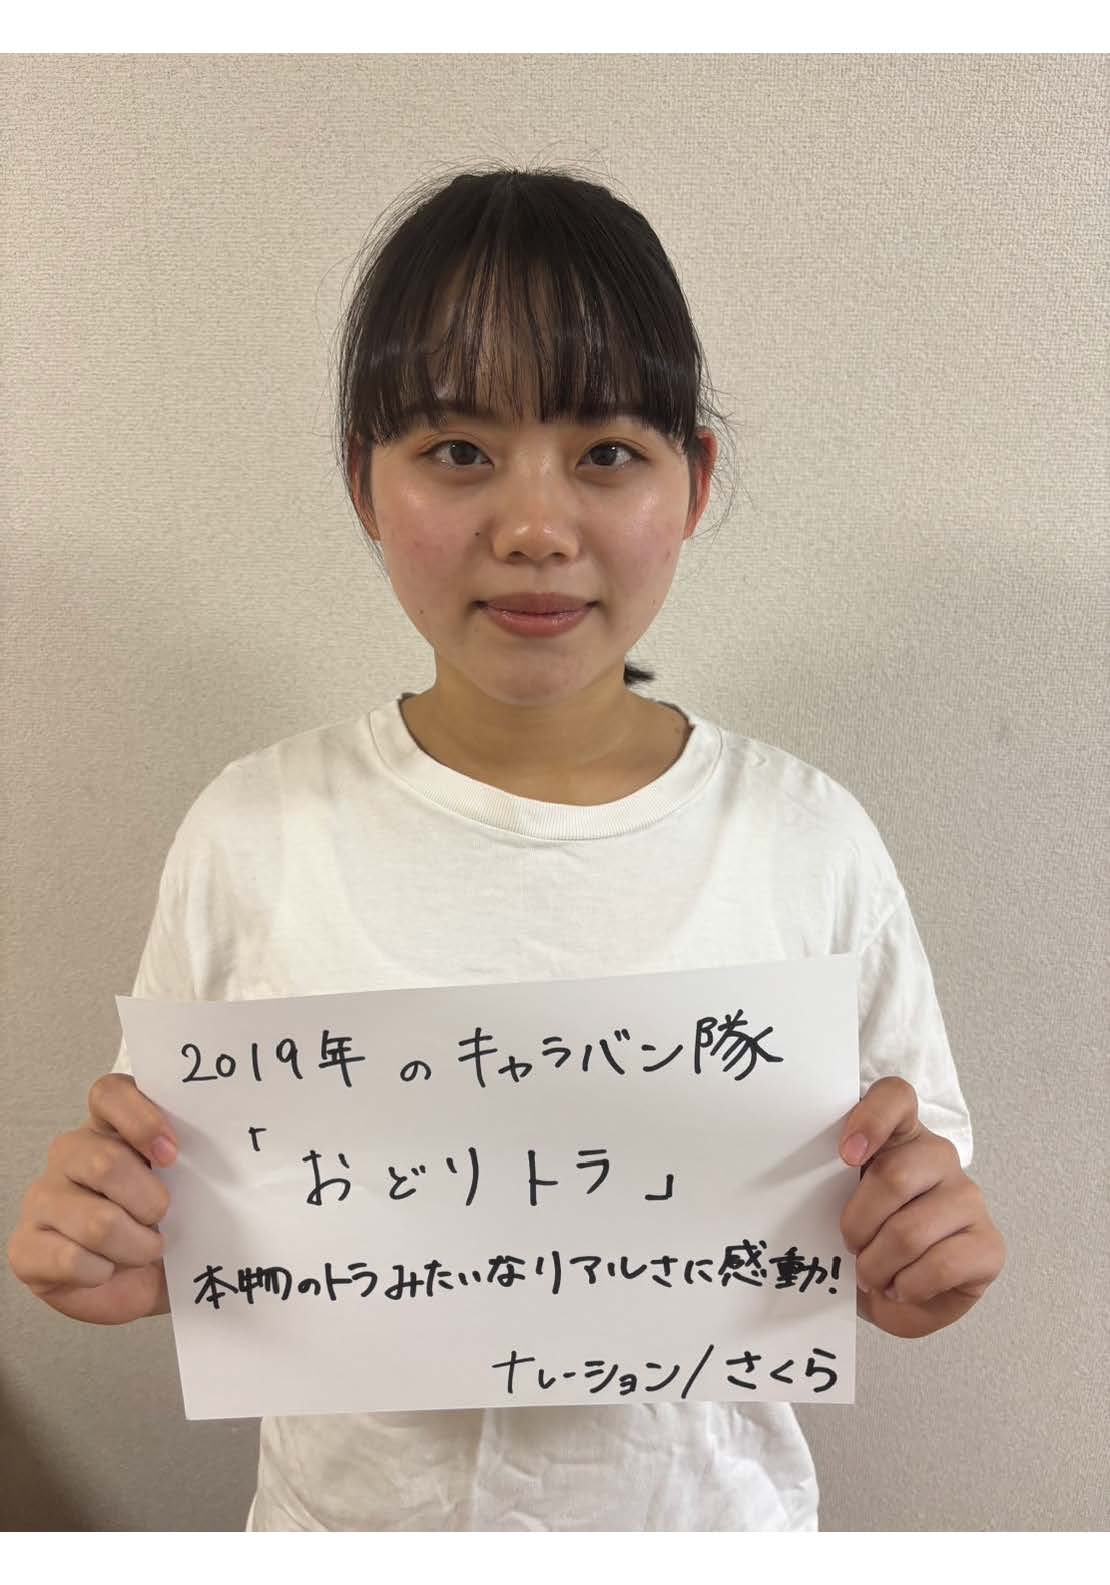 2019年のキャラバン隊
「おどりトラ」
本物のトラみたいなリアルさに感動!
ナレーション/さくら